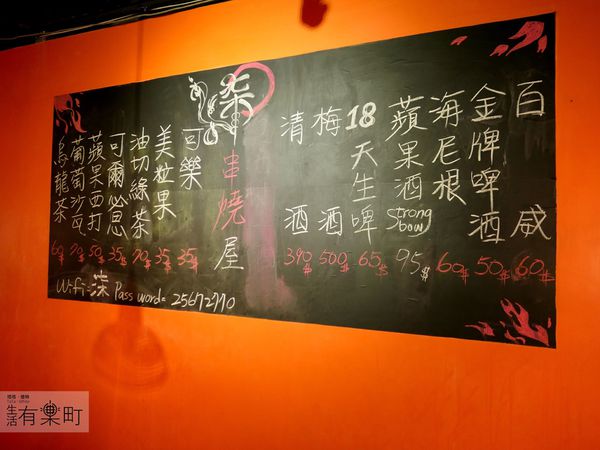 百威 60$
金牌啤酒 50$
海尼根 60$
蘋果酒 Strong bow 95$
18天生啤 65$
梅酒 500$
清酒 390$
柒串燒屋
可樂 35$
美粒果 35$
油切綠茶
可爾必思 35$
蘋果西打 50$
葡萄沙瓦
烏龍茶 60$
Wifi=柒 Password=
生活有樂町